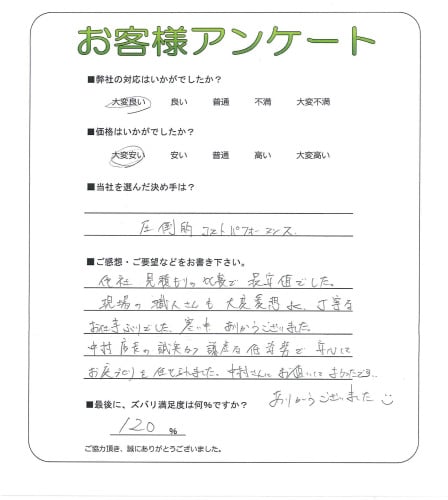 お客様アンケート
■弊社の対応はいかがでしたか？
大変良い 良い 普通 不満 大変不満
■価格はいかがでしたか？
大変安い 安い 普通 高い 大変高い
■当社を選んだ決め手は？
圧倒的コストパフォーマンス.
■ご感想・ご要望などをお書き下さい。
他社見積もりの比較で最安値でした。
現場の職人さんも大変愛想よく、丁寧な
お仕事ぶりでした。寒い中ありがとうございました。
中村店長の誠実かつ謙虚な低姿勢で安心して
お家づくりを任せられました。中村さんにお願いしてよかったです。
ありがとうございました
■最後に、ズバリ満足度は何%ですか？
120 %
ご協力頂き、誠にありがとうございました。